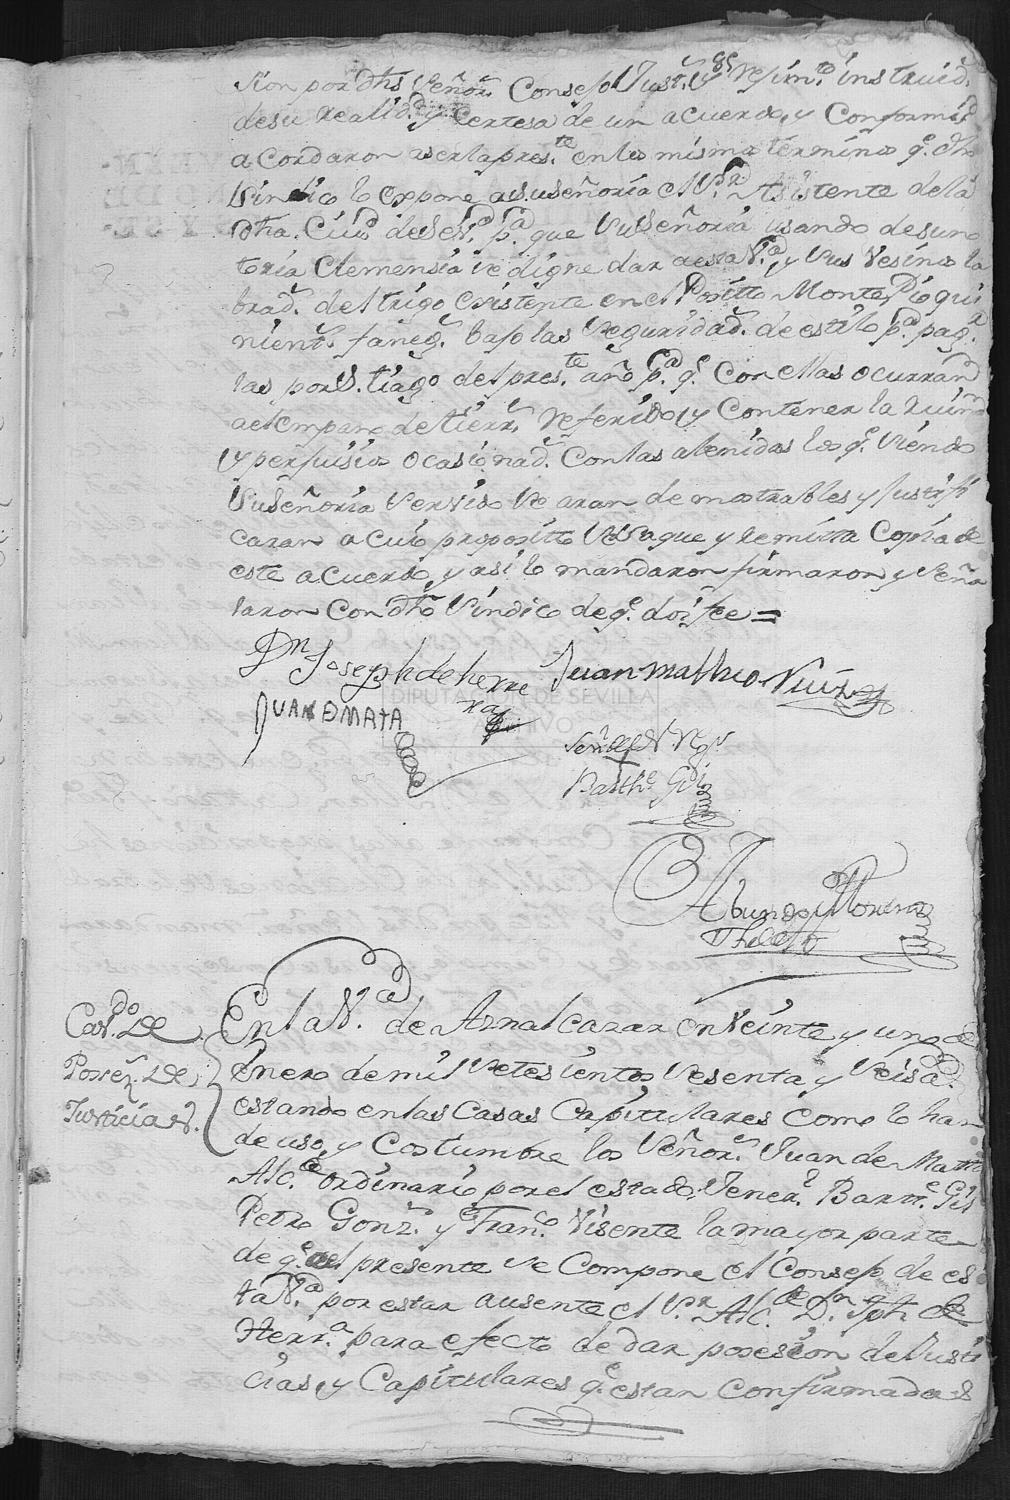 sion por dhs Señor.s Consejo Justt.a y Regim.to instruid.s
de su realid.d y certesa de un acuerdo, y Conformid.d
acordaron aserla pres.te en los mismos terminos q.e dho
Sindico lo expone a su señoria el S.r Asistente de la
dha. Ciu.d de Sev.a p.a que Su Señoria usando de su no
toria Clemensia se digne dar a esta V.a, y sus Vesinos la
brad.s del trigo Existente en el Posito Monte Pio qui
nient.s faneg.s bajo las seguridad.s de estilo p.a pag.r
las por S.tiago del pres.te año p.a q.e Con ellas ocurran
al empano de tierr.s referido, y Contener la ruina
y perjuisios ocasionad.s Con las abenidas lo q.e siendo
Su Señoria Servido se aran demostrables y Justifi
caran a cuio proposito se saque y remita Copia de
este acuerdo, y asi lo mandaron firmaron y Seña
laron Con dho Sindico de q.e doi fee =
Dn Joseph de herre
ra
Juan Matheo Ruiz
JUAN DMATA
Señal del S.r Reg.r
Barth.e Gil
Abundo y Moreno
Thildo
Cav.do de
Posses.n de
Justicias.
En la V.a de Aznalcazar en Veinte y uno de
Enero de mil Setesientos Sesenta y Seis a.s
estando en las Casas Capitulares como lo han
de uso, y Costumbre los Señor.s Juan de Mata
Alc.e ordinario por el estado Gener.l Bartt.e Gil
Pedro Gonz.s y Fran.co Visente la mayor parte
de q.e al presente se Compone el Consejo de es
ta V.a por estar ausente el S.r Alc.de D.n Jph de
Herr.a para efecto de dar posesion de Justi
cias, y Capitulares q.e estan confirmados
DIPUTACION DE SEVILLA
ARCHIVO